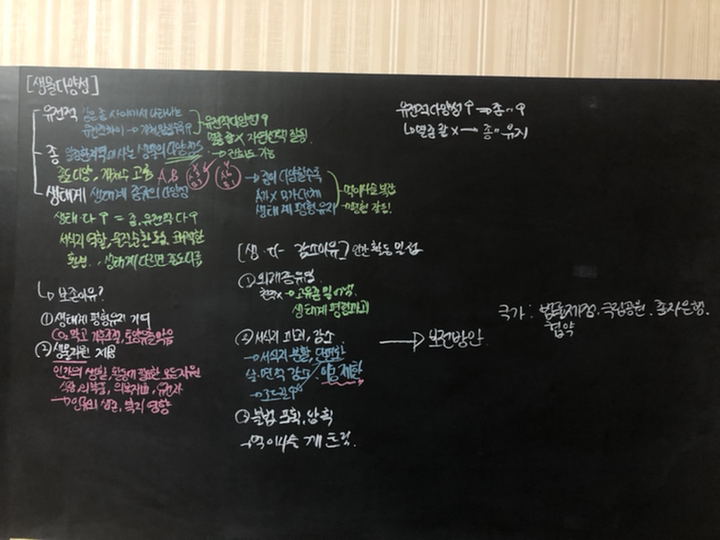 [생물다양성]
유전적 같은 종 사이에서 나타나는
유전적차이 →
유전적다양성↑
멸종 할 X 자연선택 활발.
→ 진화도 가능
종 일정한지역에 사는 생물의 다양성
종도 다양, 개체수 고름 A, B
생태계 생태계 종류의 다양성
→ 종이 다양할수록
A가 X B가 대체
생태계평형유지
먹이사슬 복잡
생태.다↑ = 종, 유전적 다↑
서식지 역할, 물질순환
환변.. 생태계 다르면 종도 다름
↳ 보존이유?
① 생태계 평형유지 기여
CO₂ 막고 기후조절, 토양유실막음
② 생물자원 제공
인간의 생활, 활동에 필요한 모든자원
식량, 의약품, 의복재료, 유전자
→ 인류의 생존, 복지 영향
[생.다 감소이유] 인간 활동 밀접
① 외래종유입
천적X → 고유종 밀어냄,
생태계 평형파괴
② 서식지 파괴, 감소
→ 서식지 분할, 단편화
살.면적 감소. 이동제한
③ 불법 포획, 남획
→ 먹이사슬 깨트림.
유전적다양성↑ ⇒ 종 〃 ↑
↳ 멸종 할 X → 종 〃 유지
→ 보전방안
국가: 법률제정. 국립공원. 종자은행.
협약